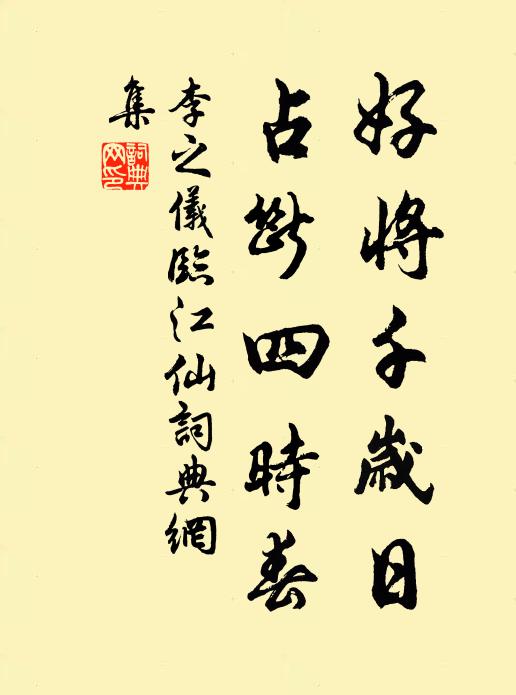 好將千歲日
占斷四時春
李之儀臨江仙詞典網
集
詞典
网印